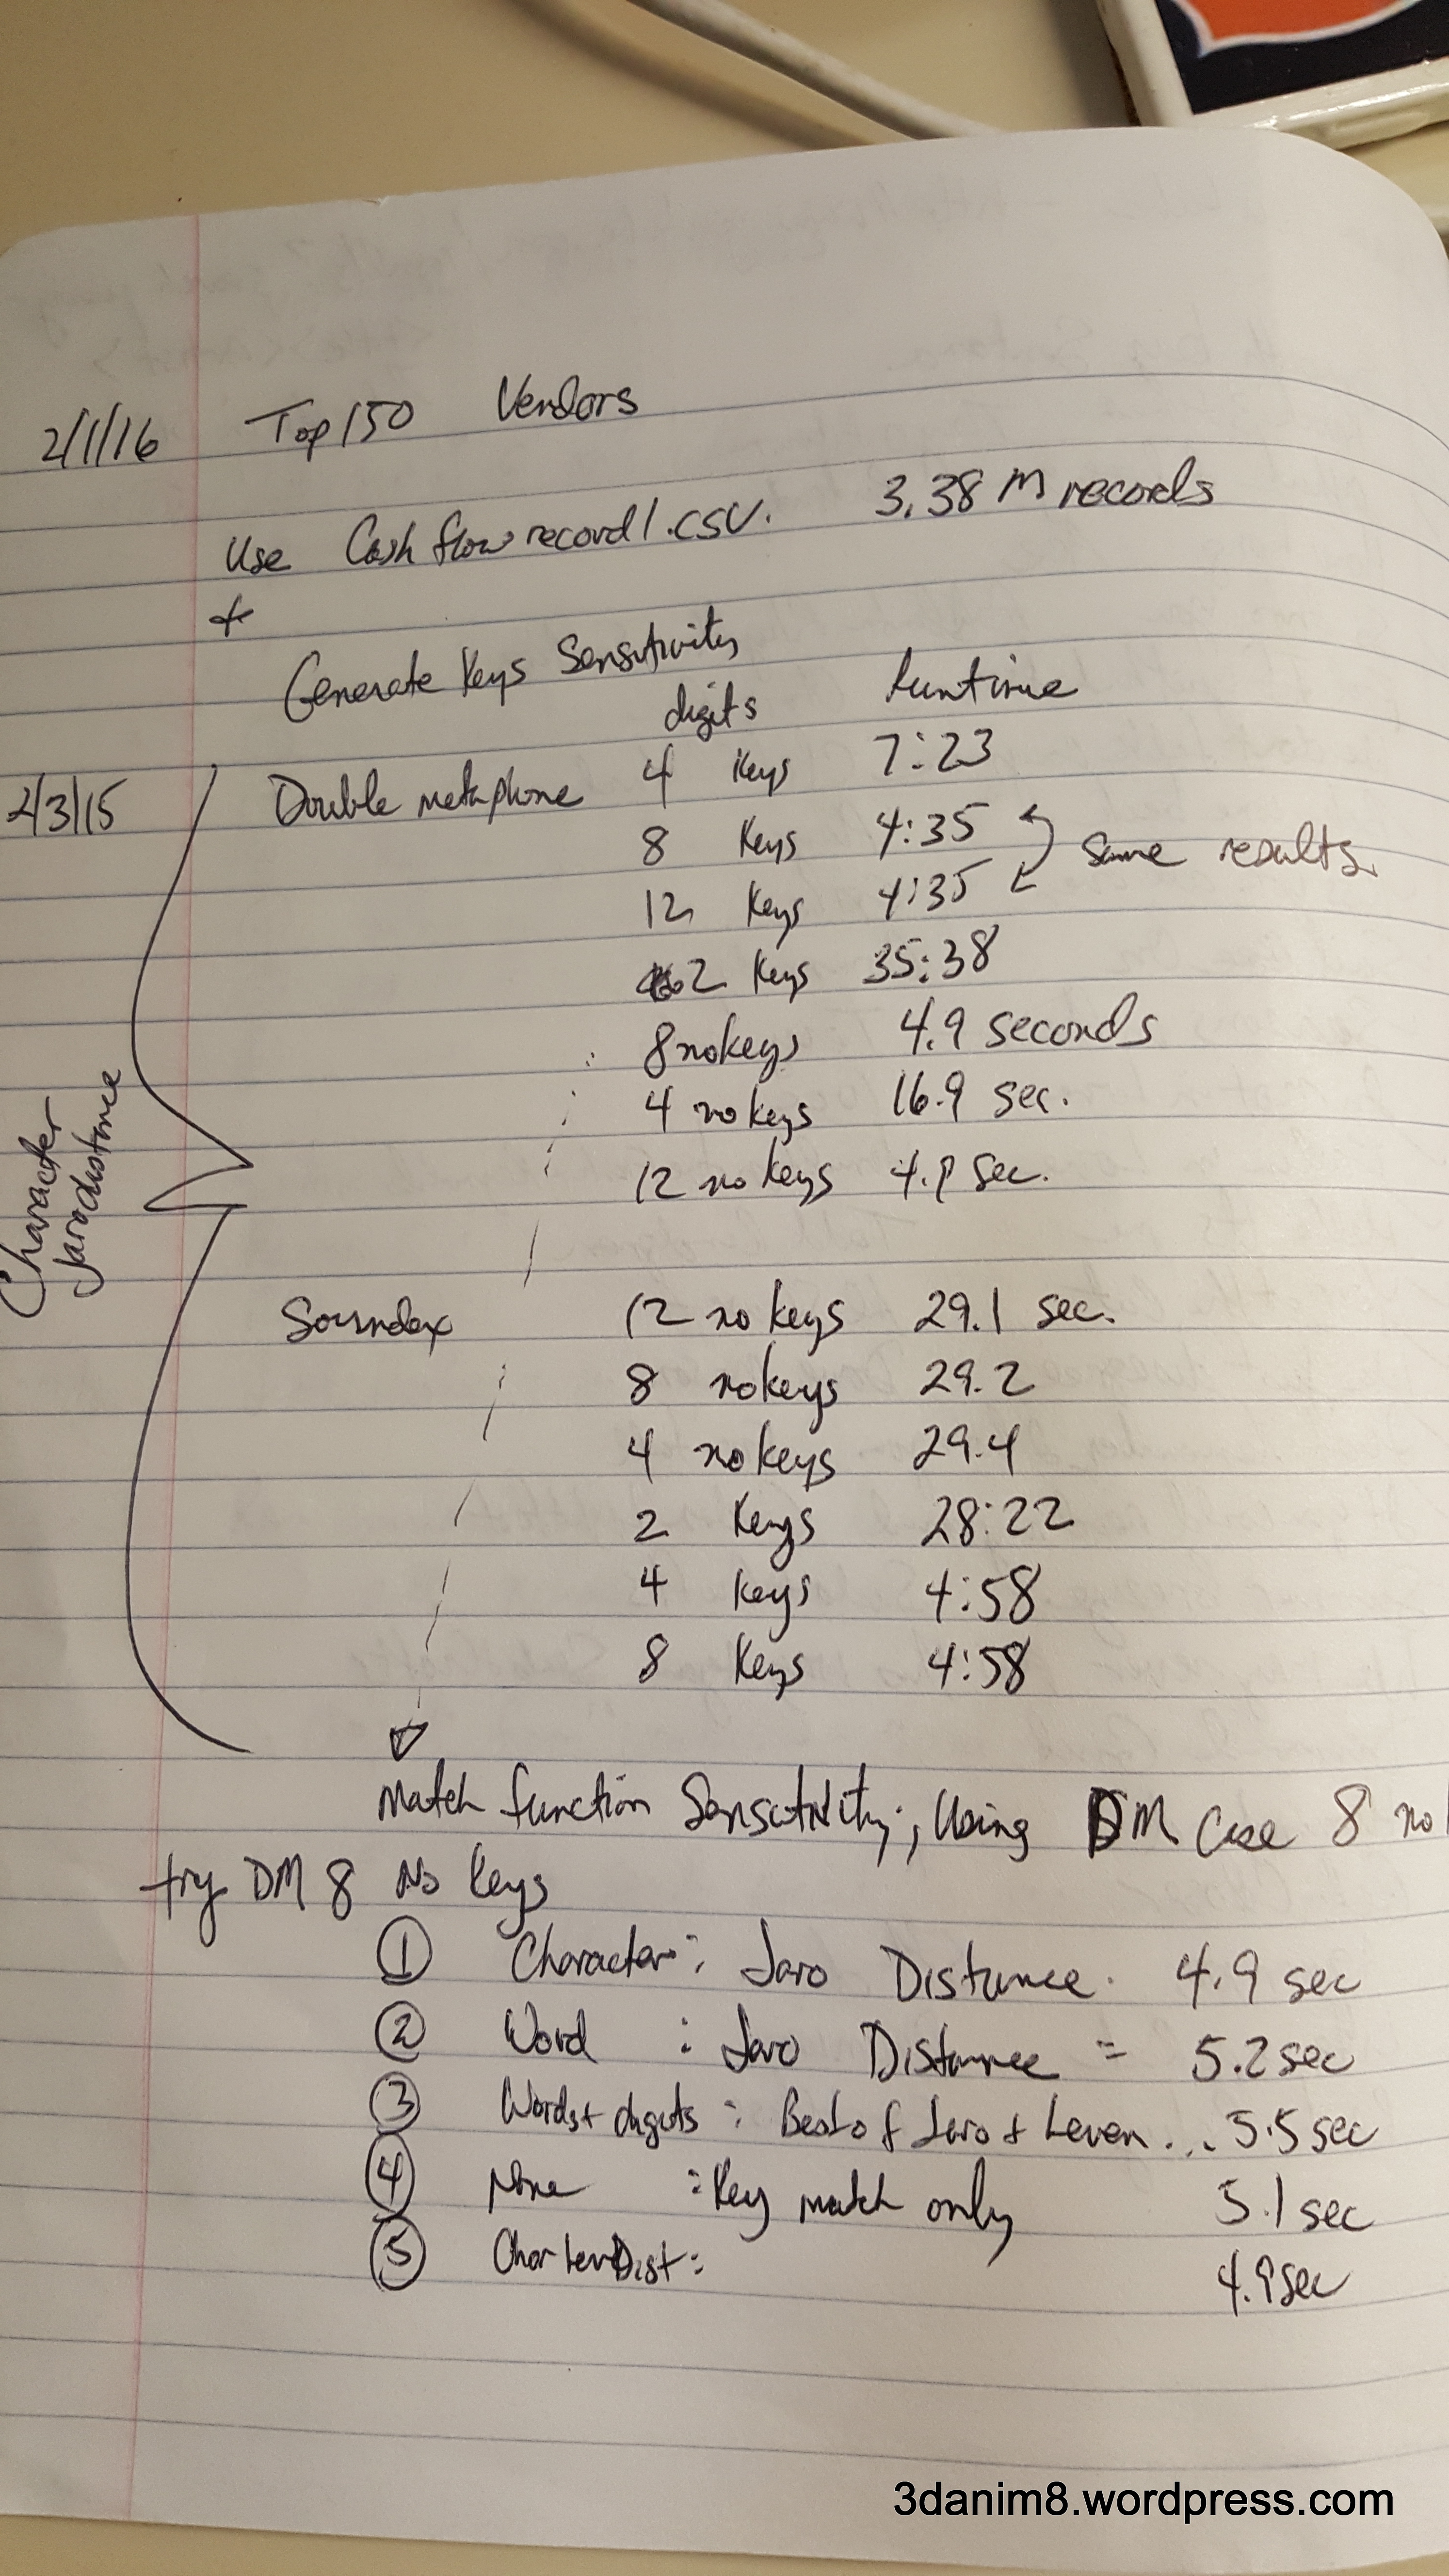 2/1/16 Top 150 Vendors
Use Cash flow record1.csv. 3.38 M records
+
Generate Keys Sensitivity
digits Runtime
2/3/15 Double metaphone 4 Keys 7:23
8 Keys 4:35
12 Keys 4:35
Same results.
2 Keys 35:38
8 no keys 4.9 seconds
4 no keys 16.9 sec.
12 no keys 4.9 sec.
Character
Jarodistance
Soundex 12 no keys 29.1 sec.
8 no keys 29.2
4 no keys 29.4
2 Keys 28:22
4 Keys 4:58
8 Keys 4:58
Match function Sensitivity; Using DM Case 8 no
try DM 8 No Keys
1 Character: Jaro Distance. 4.9 sec
2 Word : Jaro Distance = 5.2 sec
3 Words+digits : Best of Jaro + Leven... 5.5 sec
4 None : Key match only 5.1 sec
5 Char LevDist: 4.9 sec
3danim8.wordpress.com